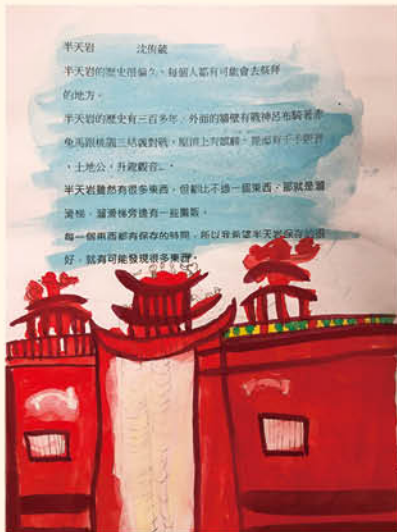 半天岩 沈侑毓
半天岩的歷史很偏久，每個人都有可能會去祭拜
的地方。
半天岩的歷史有三百多年，外面的牆壁有戰神呂布騎著赤
兔馬跟桃園三結義對戰，屋頂上有麒麟，裡面有千手觀音
、土地公、升龍觀音…。
半天岩雖然有很多東西，但都比不過一個東西，那就是溜
滑梯，溜滑梯旁邊有一些攤販。
每一個東西都有保存的時間，所以我希望半天岩保存的很
好，就有可能發現很多東西。